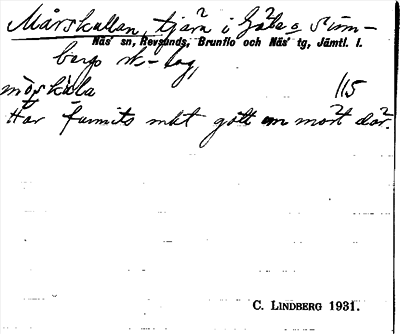 Mårskullan, tjärn i Gåle o Sim-
Näs sn, Revsunds, Brunflo och Näs tg, Jämtl. l.
berg sk-lag,
mòskùla 115
Har funnits mkt gott om mört där.
C. LINDBERG 1931.